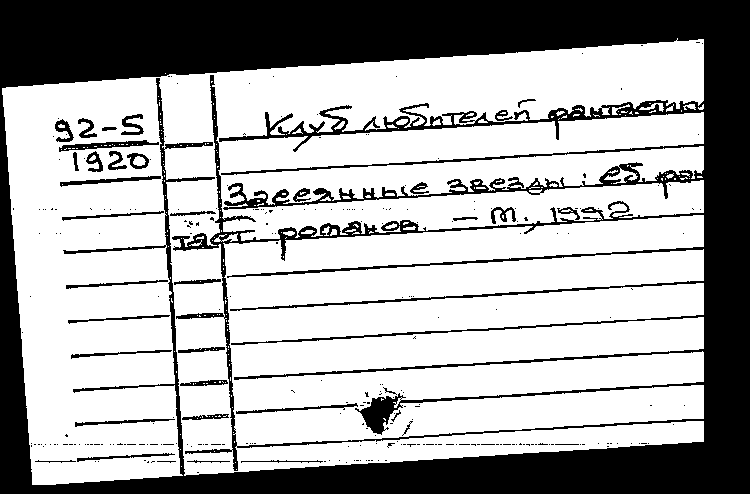 92-5
1920
Клуб любителей фантастики
Засеянные звезды : сб. фан
таст. романов. — М., 1992